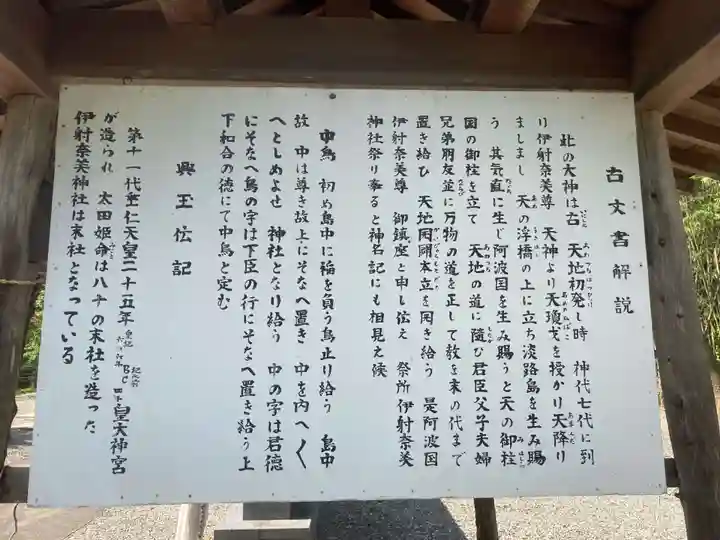 古文書解説
此の大神は古 天地初発し時 神代七代に到
り伊射奈美尊 天神より天瓊戈を授かり天降り
ましまし 天の浮橋の上に立ち淡路島を生み賜
う 其気直に生じ阿波国を生み賜うと天の御柱
国の御柱を立て 天地の道に随び君臣父子夫婦
兄弟朋友並に万物の道を正して教を末の代まで
置き給ひ 天地開闢本立を開き給う 是阿波国
伊射奈美尊 御鎮座と申し伝え 祭所伊射奈美
神社祭り奉ると神名記にも相見え候
中鳥 初め島中に稲を負う鳥止り給う 島中
故 中は尊き故上にそなへ置き 中を内へ〱
へとしめよせ 神社となり給う 中の字は君徳
にそなへ鳥の字は下臣の行にそなへ置き給う上
下和合の徳にて中鳥と定む
興玉伝記
第十一代垂仁天皇二十五年 BC 皇大神宮
が造られ 太田姫命は八十の末社を造った
伊射奈美神社は末社となっている